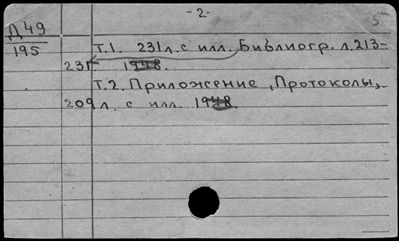 -2-
5
Д49
195
Т.1. 231л. с илл. Библиогр. л.213-
231. 1948.
Т.2. Приложение, Протоколы,
209л. с илл. 1948.